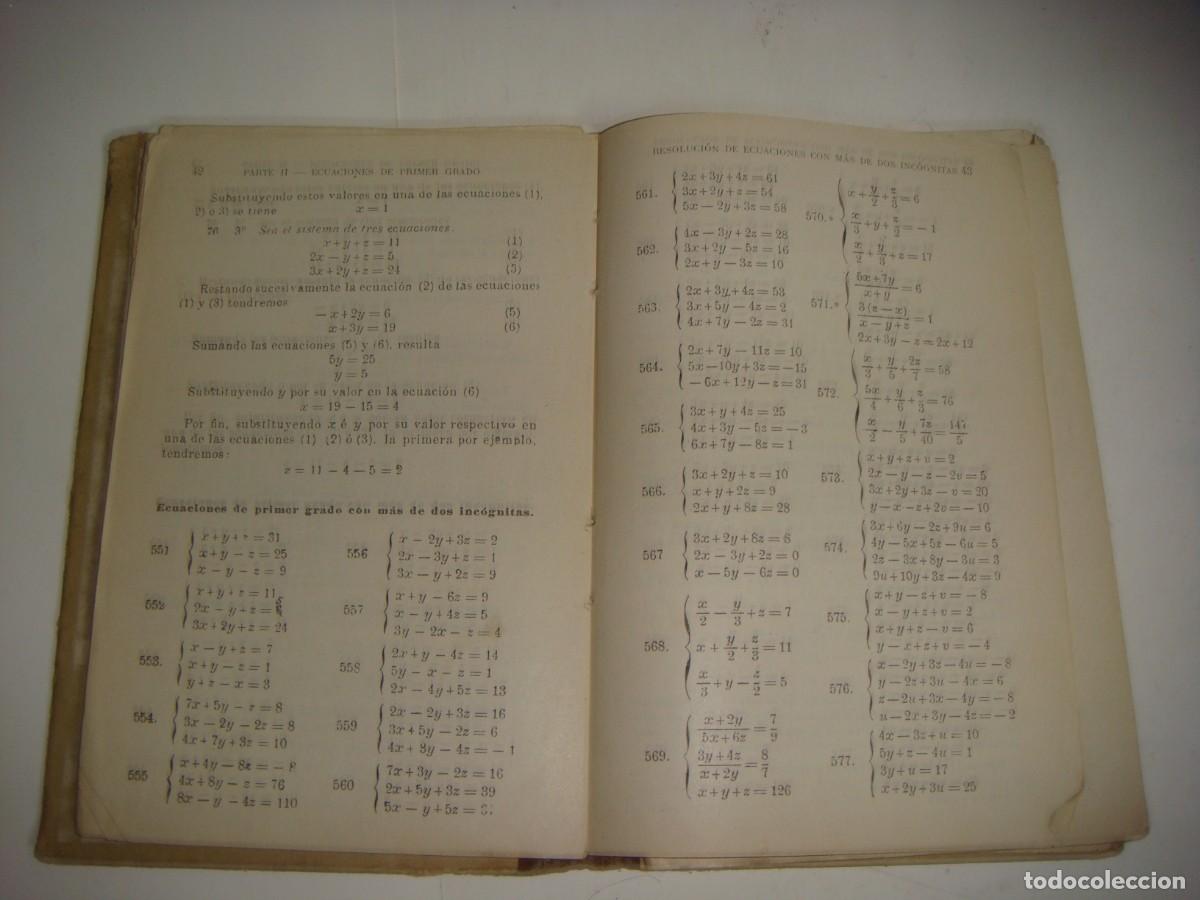 42 PARTE II — ECUACIONES DE PRIMER GRADO
Substituyendo estos valores en una de las ecuaciones (1),
2) o 3) se tiene x = 1
76 3º Sea el sistema de tres ecuaciones.
x+y+z = 11 (1)
2x — y+z = 5 (2)
3x+2y+z = 24 (3)
Restando sucesivamente la ecuación (2) de las ecuaciones
(1) y (3) tendremos
— x+2y = 6 (5)
x+3y = 19 (6)
Sumando las ecuaciones (5) y (6), resulta
5y = 25
y = 5
Substituyendo y por su valor en la ecuación (6)
x = 19 — 15 = 4
Por fin, substituyendo x é y por su valor respectivo en
una de las ecuaciones (1) (2) ó (3). la primera por ejemplo,
tendremos:
z = 11 — 4 — 5 = 2
Ecuaciones de primer grado con más de dos incógnitas.
551 x+y+z = 31
x+y — z = 25
x — y — z = 9
552 x+y+z = 11
2x — y+z = 5
3x+2y+z = 24
553. x — y+z = 7
x+y — z = 1
y+z — x = 3
554. 7x+5y — z = 8
3x — 2y — 2z = 8
4x+7y+3z = 10
555 x+4y — 8z = — 8
4x+8y — z = 76
8x — y — 4z = 110
556 x — 2y+3z = 2
2x — 3y+z = 1
3x — y+2z = 9
557 x+y — 6z = 9
x — y+4z = 5
3y — 2x — z = 4
558 2x+y — 4z = 14
5y — x — z = 1
2x — 4y+5z = 13
559 2x — 2y+3z = 16
3x+5y — 2z = 6
4x+8y — 4z = — 1
560 7x+3y — 2z = 16
2x+5y+3z = 39
5x — y+5z =
RESOLUCIÓN DE ECUACIONES CON MÁS DE DOS INCÓGNITAS 43
561. 2x+3y+4z = 61
3x+2y+z = 54
5x — 2y+3z = 58
562. 4x — 3y+2z = 28
3x+2y — 5z = 16
2x+y — 3z = 10
563. 2x+3y+4z = 53
3x+5y — 4z = 2
4x+7y — 2z = 31
564. 2x+7y — 11z = 10
5x — 10y+3z = — 15
— 6x+12y — z = 31
565. 3x+y+4z = 25
4x+3y — 5z = — 3
6x+7y — 8z = 1
566. 3x+2y+z = 10
x+y+2z = 9
2x+y+8z = 28
567 3x+2y+8z = 8
2x — 3y+2z = 0
x — 5y — 6z = 0
568. x/2 — y/3+z = 7
x+y/2+z/3 = 11
x/3+y — z/2 = 5
569. (x+2y)/(5x+6z) = 7/9
(3y+4z)/(x+2y) = 8/7
x+y+z = 126
570.* x+y/2+z/3 = 6
x/3+y+z/2 = — 1
x/2+y/3+z = 17
571.* (5x+7y)/(x+y) = 6
3(z — x)/(x — y+z) = 1
2x+3y — z = 2x+12
572. x/3+y/5+2z/7 = 58
5x/4+y/6+z/3 = 76
x/2 — y/5+7z/40 = 147/5
573. x+y+z+v = 2
2x — y — z — 2v = 5
3x+2y+3z — v = 20
y — x — z+2v = — 10
574. 3x+6y — 2z+9u = 6
4y — 5x+5z — 6u = 5
2z — 3x+8y — 3u = 3
9u+10y+3z — 4x = 9
575. x+y — z+v = — 8
x — y+z+v = 2
x+y+z — v = 6
y — x+z+v = — 4
576. x — 2y+3z — 4u = — 8
y — 2z+3u — 4x = 6
z — 2u+3x — 4y = — 8
u — 2x+3y — 4z = — 2
577. 4x — 3z+u = 10
5y+z — 4u = 1
3y+u = 17
x+2y+3u = 25
todocoleccion